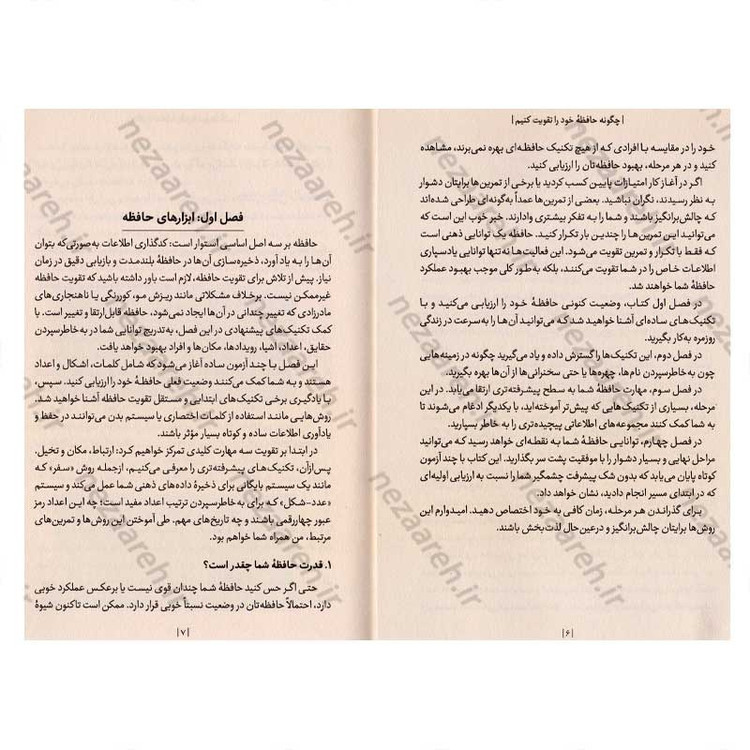 | چگونه حافظهٔ خود را تقویت کنیم |
خود را در مقایسه با افرادی که از هیچ تکنیک حافظه‌ای بهره نمی‌برند، مشاهده
کنید و در هر مرحله، بهبود حافظه‌تان را ارزیابی کنید.
اگر در آغاز کار امتیازات پایین کسب کردید یا برخی از تمرین‌ها برایتان دشوار
به نظر رسیدند، نگران نباشید. بعضی از تمرین‌ها عمداً به‌گونه‌ای طراحی شده‌اند
که چالش‌برانگیز باشند و شما را به تفکر بیشتری وادارند. خبر خوب این است که
می‌توانید این تمرین‌ها را چندین بار تکرار کنید. حافظه یک توانایی ذهنی است
که فقط با تکرار و تمرین تقویت می‌شود. این فعالیت‌ها نه‌تنها توانایی یادسپاری
اطلاعات خاص را در شما تقویت می‌کنند، بلکه به‌طور کلی موجب بهبود عملکرد
حافظهٔ شما خواهند شد.
در فصل اول کتاب، وضعیت کنونی حافظهٔ خود را ارزیابی می‌کنید و با
تکنیک‌های ساده‌ای آشنا خواهید شد که می‌توانید آن‌ها را به‌سرعت در زندگی
روزمره به‌کار بگیرید.
در فصل دوم، این تکنیک‌ها را گسترش داده و یاد می‌گیرید چگونه در زمینه‌هایی
چون به خاطرسپردن نام‌ها، چهره‌ها یا حتی سخنرانی‌ها از آن‌ها بهره بگیرید.
در فصل سوم، مهارت حافظهٔ شما به سطح پیشرفته‌تری ارتقا می‌یابد. در این
مرحله، بسیاری از تکنیک‌هایی که پیش‌تر آموخته‌اید، با یکدیگر ادغام می‌شوند تا
به شما کمک کنند مجموعه‌های اطلاعاتی پیچیده‌تری را به خاطر بسپارید.
در فصل چهارم، توانایی حافظهٔ شما به نقطه‌ای خواهد رسید که می‌توانید
مراحل نهایی و بسیار دشوار را با موفقیت پشت سر بگذارید. این کتاب با چند آزمون
کوتاه پایان می‌یابد که بدون شک پیشرفت چشمگیر شما را نسبت به ارزیابی اولیه‌ای
که در ابتدای مسیر انجام دادید، نشان خواهد داد.
برای گذراندن هر مرحله، زمان کافی به خود اختصاص دهید. امیدوارم این
روش‌ها برایتان چالش‌برانگیز و درعین‌حال لذت‌بخش باشند.
| ۶ |
فصل اول: ابزارهای حافظه
حافظه بر سه اصل اساسی استوار است: کدگذاری اطلاعات به‌صورتی‌که بتوان
آن‌ها را به یاد آورد، ذخیره‌سازی آن‌ها در حافظهٔ بلندمدت و بازیابی دقیق در زمان
نیاز. پیش از تلاش برای تقویت حافظه، لازم است باور داشته باشید که تقویت حافظه
غیرممکن نیست. برخلاف مشکلاتی مانند ریزش مو، کوررنگی یا ناهنجاری‌های
مادرزادی که تغییر چندانی در آن‌ها ایجاد نمی‌شود، حافظه قابل‌ارتقا و تغییر است. با
کمک تکنیک‌های پیشنهادی در این فصل، به‌تدریج توانایی شما در به خاطرسپردن
حقایق، اعداد، اشیا، رویدادها، مکان‌ها و افراد بهبود خواهد یافت.
این فصل با چند آزمون ساده آغاز می‌شود که شامل کلمات، اشکال و اعداد
هستند و به شما کمک می‌کنند وضعیت فعلی حافظهٔ خود را ارزیابی کنید. سپس،
با یادگیری برخی تکنیک‌های ابتدایی و مستقل تقویت حافظه آشنا خواهید شد.
روش‌هایی مانند استفاده از کلمات اختصاری یا سیستم بدن می‌توانند در حفظ و
یادآوری اطلاعات ساده و کوتاه بسیار مؤثر باشند.
در ابتدا بر تقویت سه مهارت کلیدی تمرکز خواهیم کرد: ارتباط، مکان و تخیل.
پس‌ازآن، تکنیک‌های پیشرفته‌تری را معرفی می‌کنیم، ازجمله روش «سفر» که
مانند یک سیستم بایگانی برای ذخیرهٔ داده‌های ذهنی شما عمل می‌کند و سیستم
«عدد-شکل» که برای به خاطرسپردن ترتیب اعداد مفید است؛ چه این اعداد رمز
عبور چهاررقمی باشند و چه تاریخ‌های مهم. طی آموختن این روش‌ها و تمرین‌های
مرتبط، من همراه شما خواهم بود.
۱. قدرت حافظهٔ شما چقدر است؟
حتی اگر حس کنید حافظهٔ شما چندان قوی نیست یا برعکس عملکرد خوبی
دارد، احتمالاً حافظه‌تان در وضعیت نسبتاً خوبی قرار دارد. ممکن است تاکنون شیوهٔ
| ۷ |
nezaareh.ir
nezaareh.ir
nezaareh.ir
nezaareh.ir
nezaareh.ir
nezaareh.ir